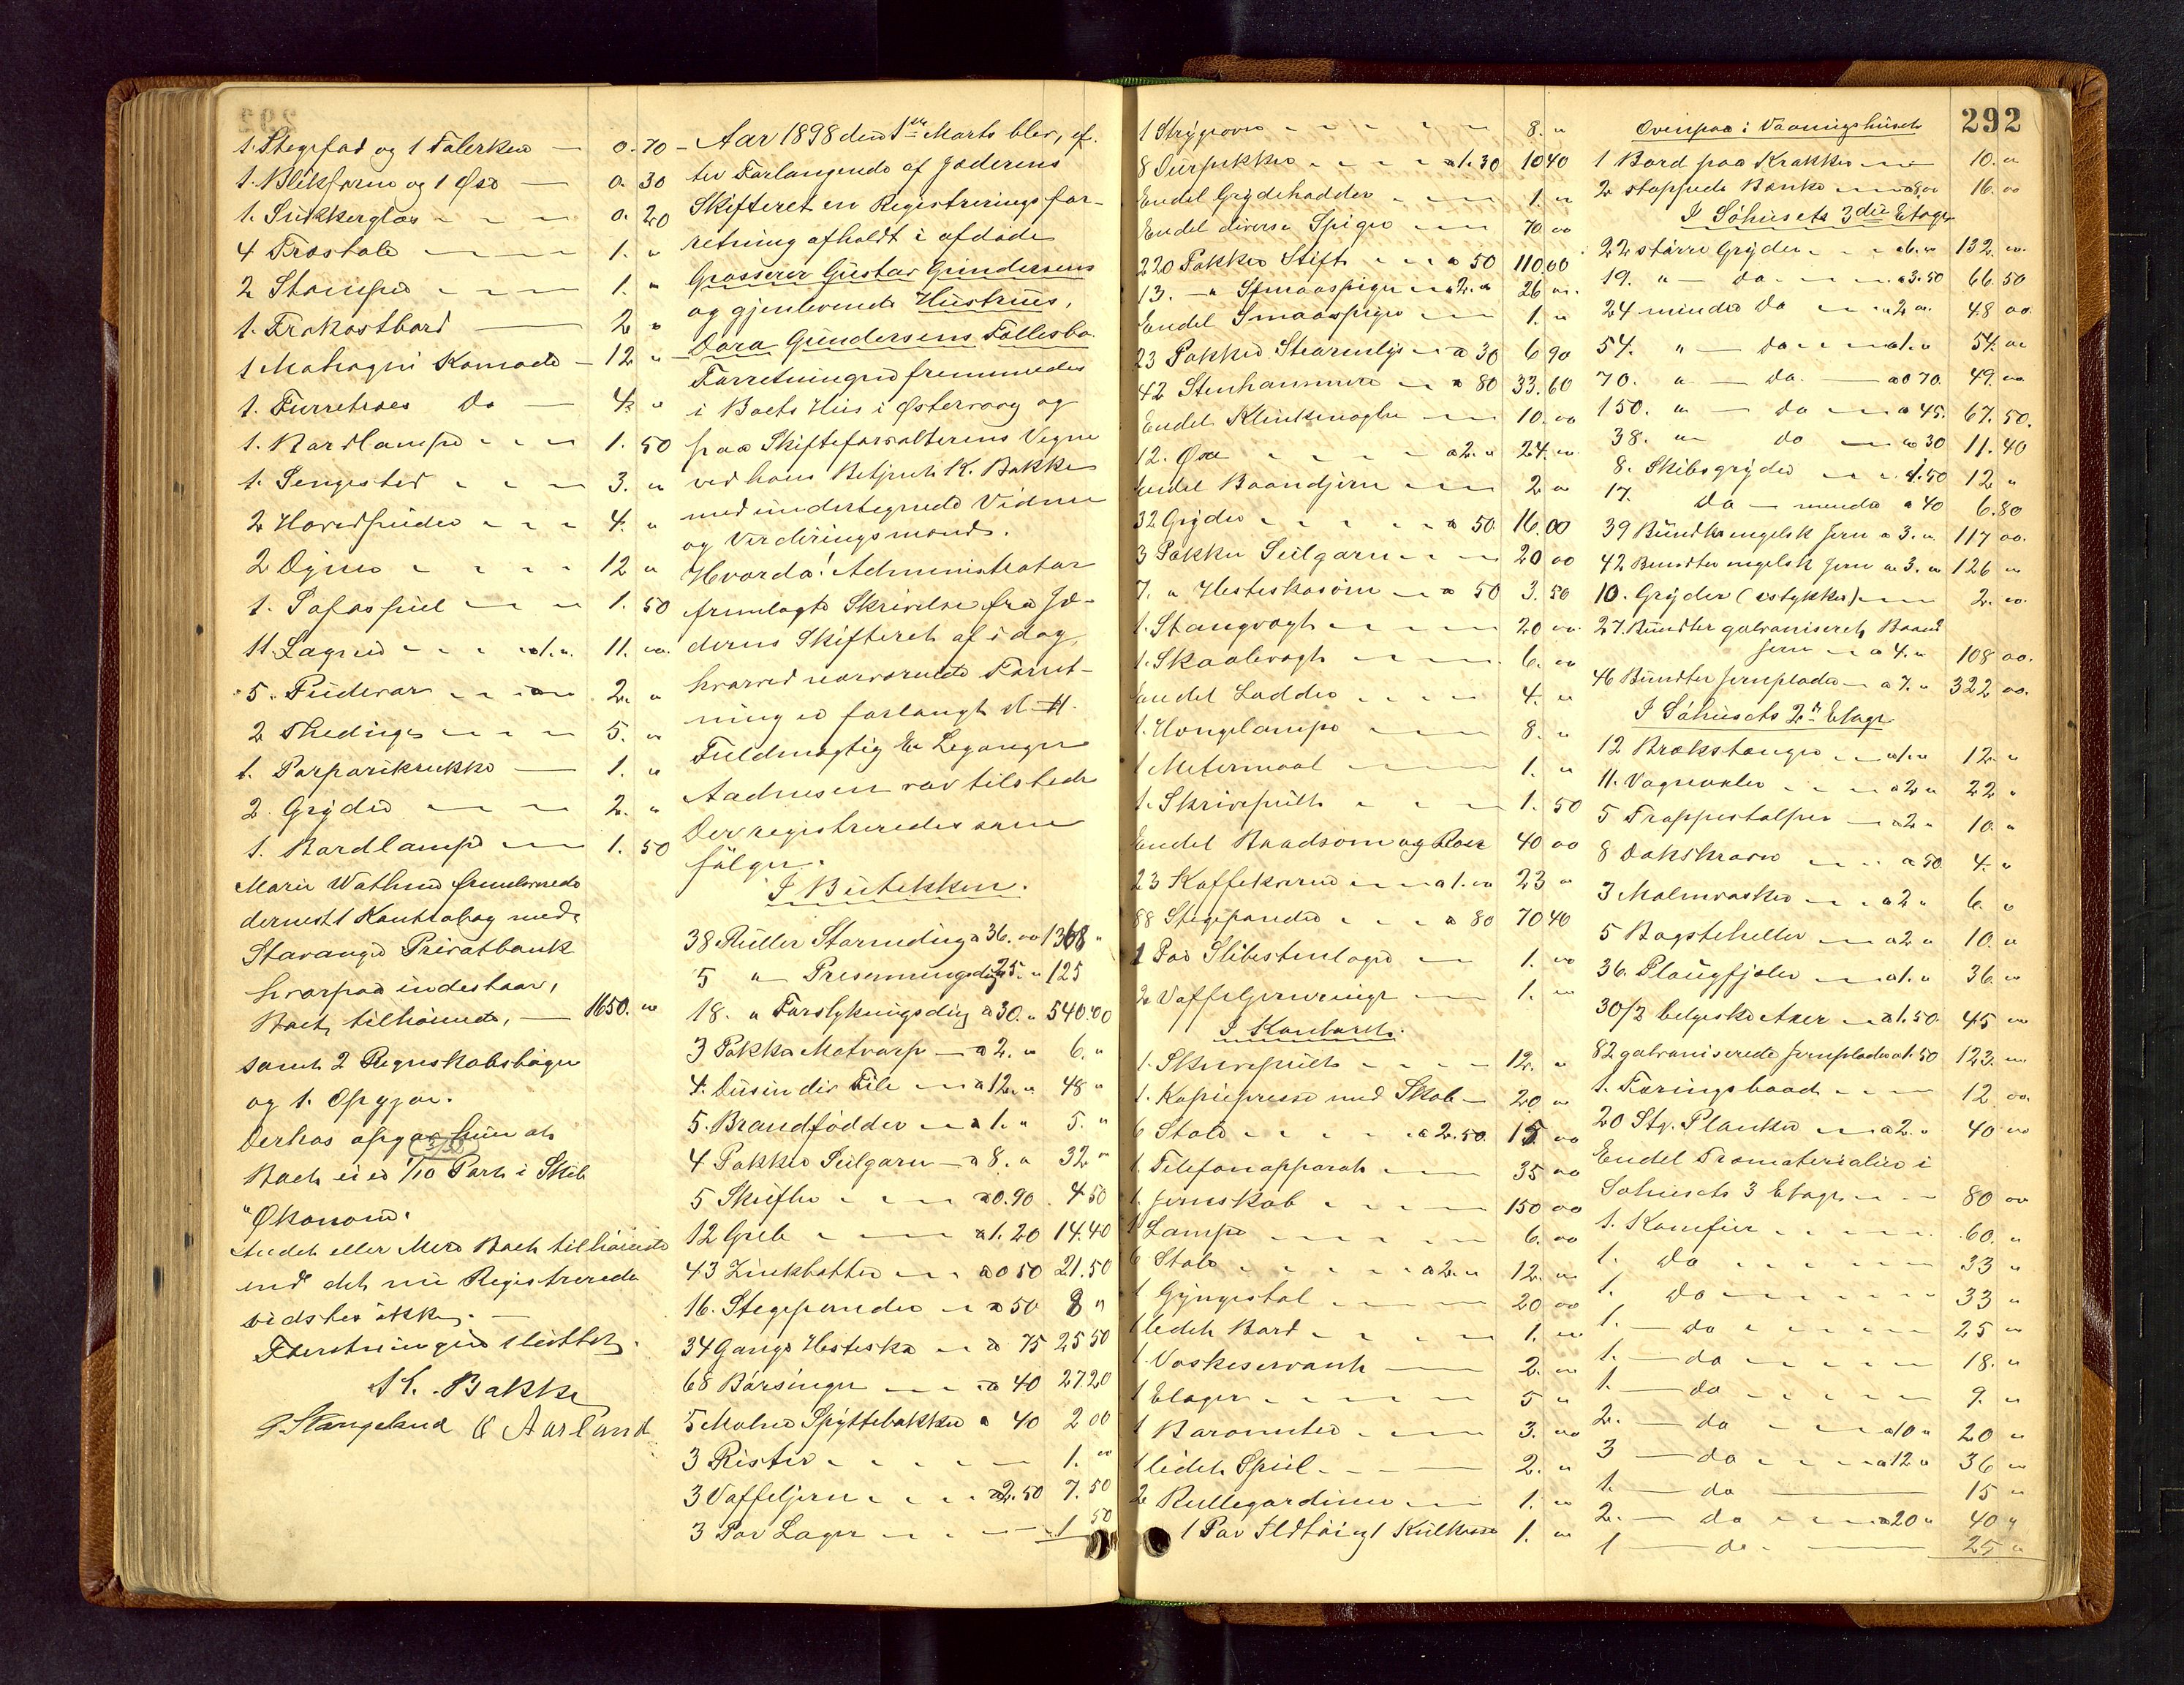 1. Stegefad og 1 Talerken — 0. 70
1. Blikform og 1 Øse — 0. 30
1. Sukkerglas 0. 20
4 Træstole 1. "
2 Stamper 1. "
1. Frokostbord — 2 "
1 Mahogni Komode — 12 "
1. Furretræes Do — 4. "
1. Bordlampe 1. 50
1. Sengested 3. "
2 Hovedpuder 4. "
2 Dyner 12 "
1. Sofaspeil 1. 50
11. Lagner a 1. " 11. "
5. Pudevar 2. "
2 2 5. "
1. — 1. "
2. Gryder 2. "
1. Bordlampe 1. 50
Marie Wathne fremlevnede
dernest 1 Kontrabog med
Stavanger Privatbank
hvorpaa indestaar,
Boet tilhørende, — 1650. "
samt 2 Regnskabsbøger
og 1. Opgjør.
Derhos opgav hun at
Boet eier 1/10 Part i Skib
(3/30)
"Økonom".
Andet eller Mere Boet tilhørende
end det nu Registrerede
vidstes ikke. —
Forretningen sluttet.
K. Bakke
P. Stangeland O Aarland
Aar 1898 den 1ste Marts blev, ef-
ter Forlangende af Jæderens
Skifteret en Registreringsfor-
retning afholdt i afdøde
Grosserer Gustav Gundersens
og gjenlevende Hustrues,
Dora Gundersens Fællesbo.
Forretningen fremmedes
i Boets Hus i Østervaag og
paa Skifteforvalterens Vegne
ved hans Betjent K. Bakke
med undertegnede Vidner
og Vurderingsmænd.
Hvorda! Administrator
fremlagte Skrivelse fra Jæ-
derens Skifteret af i dag,
hvorved nærværende Forret-
ning er forlangt d. H.
Fuldmægtig E. Leganger
Aadnesen var tilstede
Der registreredes som
følger.
I Butikken.
38 Ruller Størredug a 36. oo 1368 "
5 " Presenningsdug a 25. " 125
18. " Forslykningsdug a 30. " 540.00
3 Pakke — a 2. " 6. "
4. Dusin div File a 12. " 48 "
5. Brandfødder a 1. " 5. "
4 Pakker Seilgarn — a 8. " 32 "
5 Skufler a 0.90. 4 50
12 Greb a 1.20 14.40
43 Zinkbøtter a 0 50 21.50
16. Stegepander a 50 8 "
34 Gange Hestesko a 75 25 50
68 Børsinger a 40 27.20
5 Malede Spyttebakker a 40 2 00
3 Rister 1. "
3 Vaffeljern a 2.50 7.50
3 Par Lager 1 50
292
1 Strygeovn 8. "
8 Dørpukker a 1.30 10 40
Endel Grydehadder 1. "
Endel diverse Spiger 70 oo
220 Pakker Stift a 50 110.00
13. — " Smaaspiger a 2. " 26 oo.
Endel Smaaspiger 1. "
23 Pakker Stearinlys a 30 6 90
42 Stenhammere a 80 33.60
Endel Klinknagler 10. oo
12. Øxe a 2. " 24. oo
Endel Baandjern 2 "
32 Gryder a 50 16.00
3 Pakker Seilgarn 20 oo
7. " Hesteskosøm a 50 3.50
1. Stangvægt 20 oo
1. Skaalvægt 6. oo
Endel Lodder 4. "
1. Hængelampe 8. "
1 Metermaal 1. "
1. Skrivepult 1. 50
Endel Baadsøm og Roer 40 oo
23 Kaffekværne a 1. oo 23 "
88 Stegepander a 80 70 40
1 Par Slibestenlager — 1. oo
2 Vaffeljernringe 1. "
I Kontoret.
1. Skrivepult 12. "
1. Kopiepresse med Skab — 20 "
6 Stole a 2.50. 15 oo
1. Telefonapparat 35 oo
1. Jernskab 150 oo
1 Lampe 6. oo
6 Stole a 2. " 12. "
1 Gyngestol 20 oo
1 lidet Bord 1. "
1 Vaskeservant — 2. "
1 Etager 5 "
1 Barometer 3. oo
1 lidet Speil — 2. "
2 Rullegardiner 1. "
1 Par Ildtøi og 1 Kulkasse 1. "
Ovenpaa i Vaaningshuset
1 Bord paa Krakker 10. "
2 stoppede Bænke a 8 oo 16. oo
I Søhusets 3die Etage
22 større Gryder a 6. " 132. oo.
19. " — Do a 3.50 66.50
24 mindre Do a 2 " 48 oo.
54. " — Do a 1. " 54. oo
70. " — Do. — a 0 70. 49. oo
150. " — do a 45. 67.50.
38. " do a 30 11.40
8. Skibsgryder a 1.50 12 "
17. Do — mindre a 40 6.80
39 Bundter engelsk Jern a 3. " 117 oo.
42 Bundter engelsk Jern a 3. " 126 "
10. Gryder (istykker) 2. oo.
27 Bundter galvaniseret Baand
Jern a 4. " 108 oo.
46 Bundter Jernplader — a 7. " 322 oo.
I Søhusets 2den Etage
12 Brækstænger a 1. " 12. "
11. Vognaxler a 2 " 22 "
5 Trappestolper — a 2 " 10. "
8 Dækskraver a 50 4. "
3 Malmvasker a 2 " 6. "
5 Bagsteheller a 2 " 10. "
36. Plougfjøler a 1. " 36. "
30/2 belgiske Axer a 1.50. 45 "
82 galvaniserede Jernplader a 1.50 123. "
1. Færingsbaad 12 oo.
20 Stk. Planker a 2. " 40 "
Endel Træmaterialier i
Søhusets 3 Etage 80 oo
1. Komfur 60. "
1. Do 33 "
1. Do 33 "
1. — do 25 "
1. — do 18. "
1. — do 9. "
2. — do a 10 " 20 "
3 — do a 12 " 36 "
1. — do — 15 "
2. — do a 20 " 40 "
1 — do. — 25 "